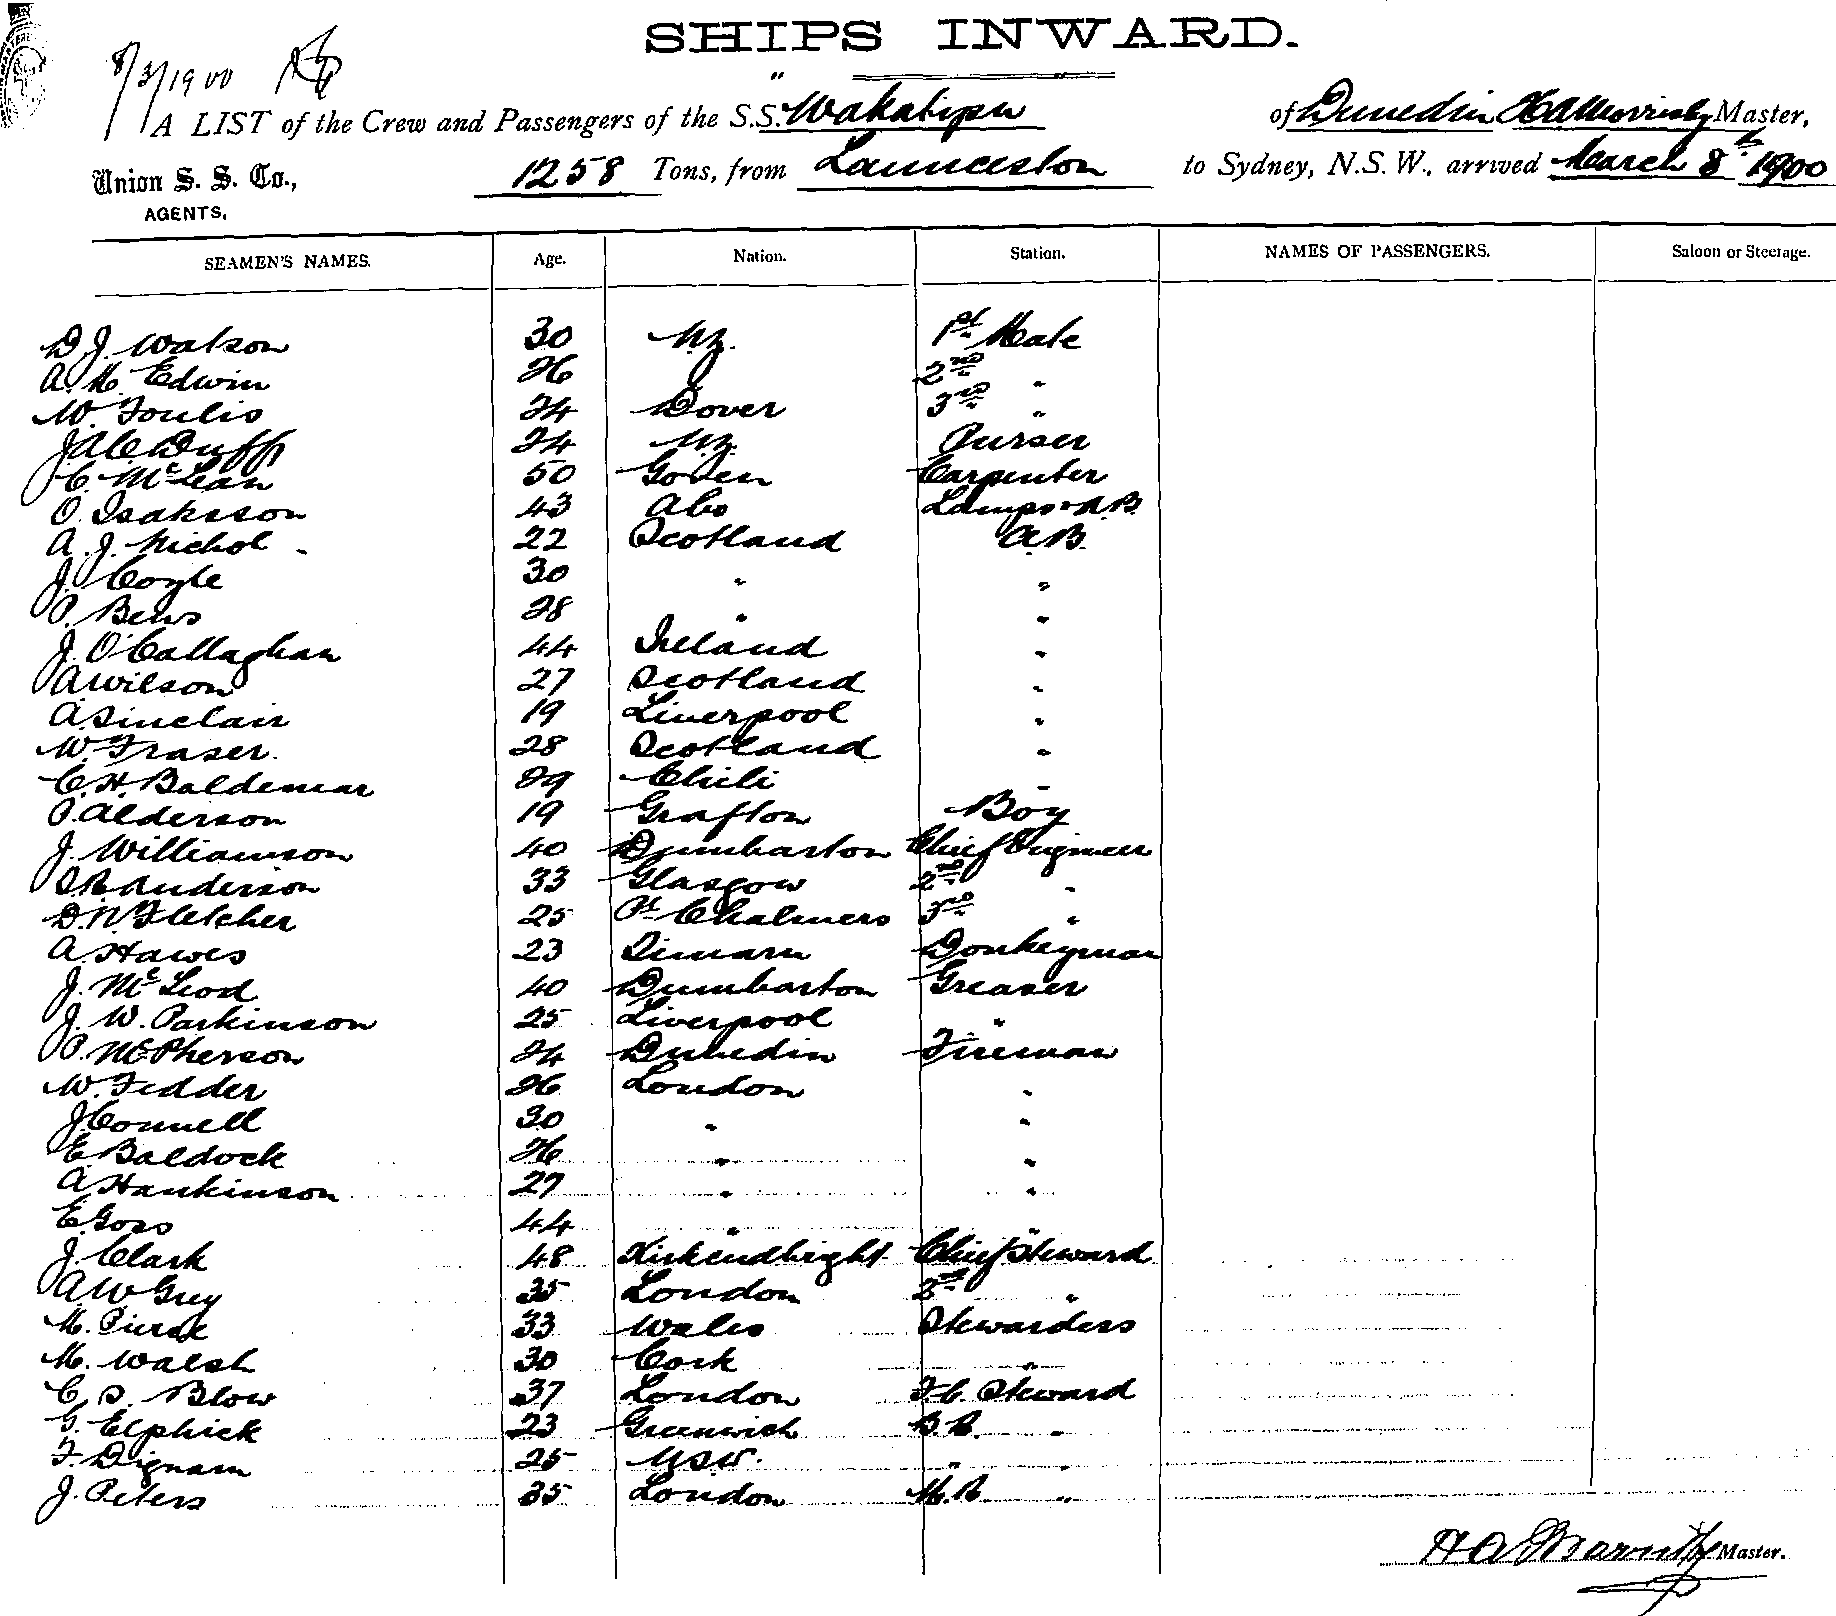 SHIPS INWARD.
8/3/1900
A LIST of the Crew and Passengers of the S.S. Wakatipu of Dunedin Master,
Union S. S. Co., 1258 Tons, from Launceston to Sydney, N.S.W., arrived March 8th 1900
AGENTS.
SEAMEN'S NAMES. Age. Nation. Station. NAMES OF PASSENGERS. Saloon or Steerage.
D J. Watson 30 N.Z. 1st Mate
A. M. Edwin 26 " 2nd "
W. Foulis 24 Dover 3rd "
J. A. C. Duff 24 N.Z. Purser
C. McLean 50 Carpenter
O. Isaksson 43 Abo Lamps & A.B.
A. J. Nichol 22 Scotland A.B.
J. Coyle 30 " "
P. Bews 28 " "
J. O'Callaghan 44 Ireland "
A Wilson 27 Scotland "
A. Sinclair 19 Liverpool "
W. Fraser. 28 Scotland "
C. H. Baldemar 29 Chili "
P. Alderson 19 Grafton Boy
J. Williamson 40 Dumbarton Chief Engineer
Anderson 33 Glasgow 2nd "
D. N. Fletcher 25 Pt Chalmers 3rd "
A. Hawes 23 Timaru Donkeyman
J. McLeod 40 Dumbarton Greaser
J. W. Parkinson 25 Liverpool "
P. McPherson 24 Dunedin Fireman
W. Fedder 26 London "
J Connell 30 " "
E. Baldock 26 " "
A. Hankinson 27 " "
E. Goss 44 " "
J. Clark 48 Kirkcudbright Chief Steward
A W Guy 35 London 2nd "
M. Pierce 33 Wales Stewardess
M. Walsh 30 Cork "
C. S. Blow 37 London F.C. Steward
G. Elphick 23 Greenwich B.R. "
F. Dignam 25 NSW. " "
J. Peters 35 London M.R. "
Master.